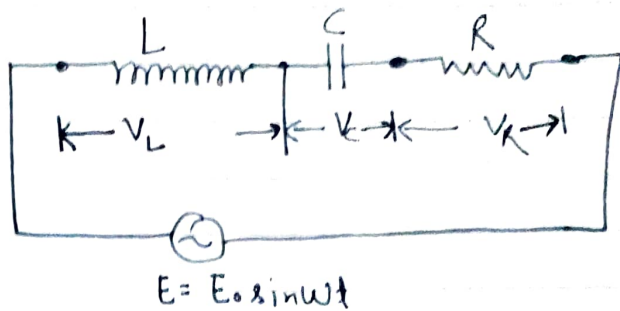 L C R
V_L V_C V_R
E = E₀ sin ωt